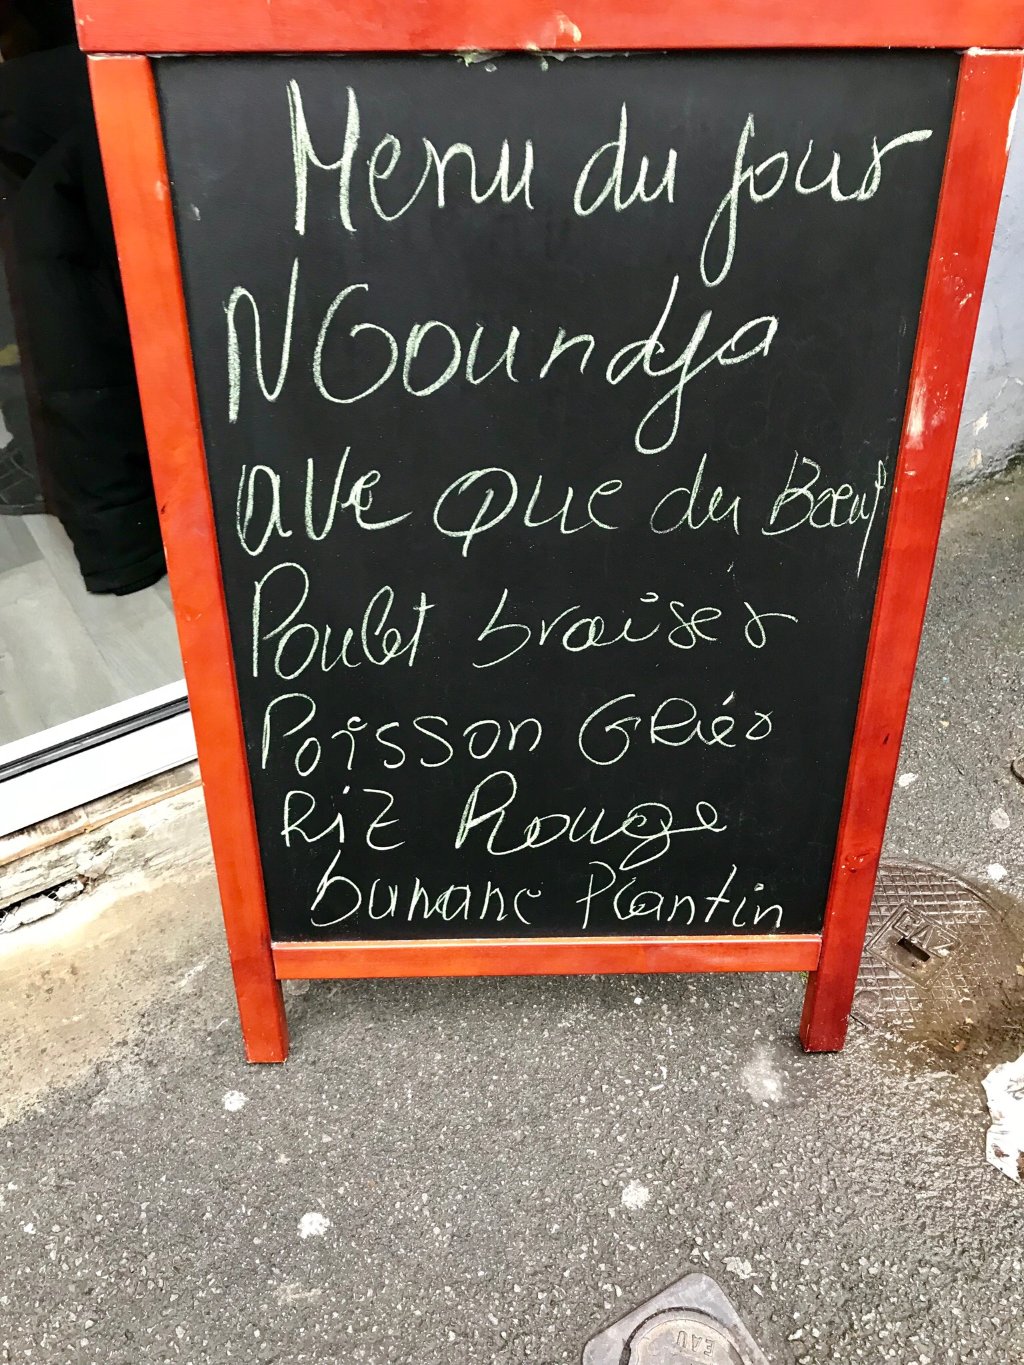 Menu du jour
NGoundja
ave Que du Bœuf
Poulet braiser
Poisson Griér
Riz Rouge
banane Plantin
EAU
EAU